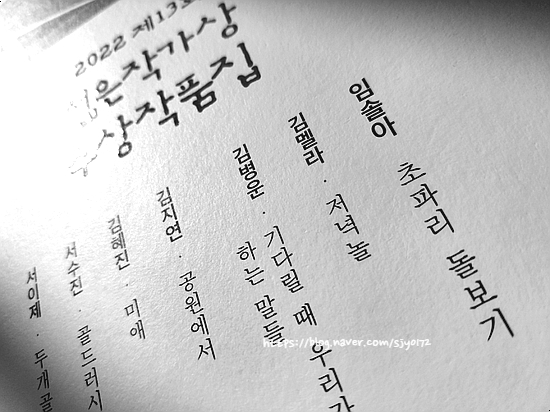 2022 제13회
젊은작가상
수상작품집
임솔아 초파리 돌보기
김멜라 · 저녁놀
김병운 · 기다릴 때 우리가
하는 말들
김지연 · 공원에서
김혜진 · 미애
서수진 · 골드러시
서이제 · 두개골
https://blog.naver.com/sjyo172